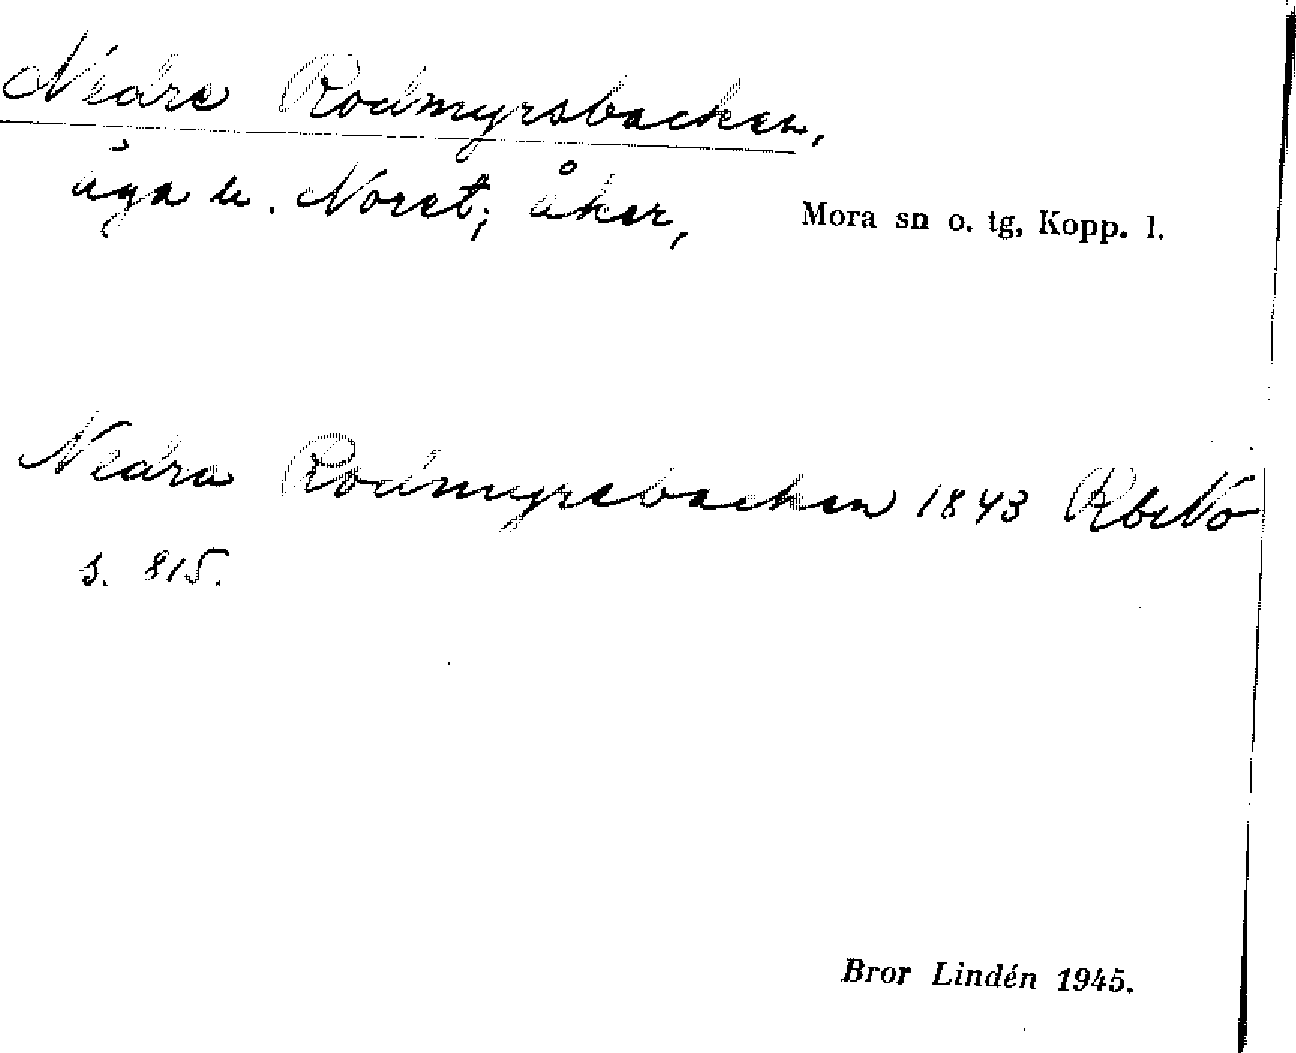 Nedre Rodmyrsbacken,
äga u. Noret; åker, Mora sn o. tg, Kopp. l.
Nedra Rodmyrsbacken 1843 RbNo
s. 815.
Bror Lindén 1945.